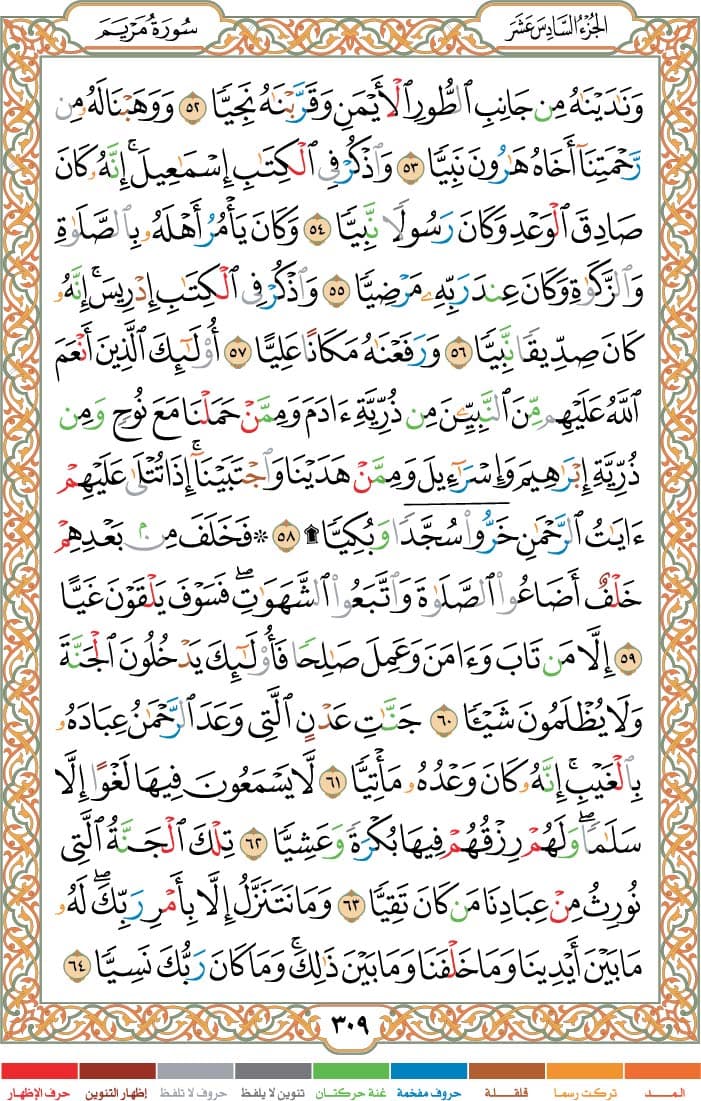 الجُزْءُ السَّادِسَ عَشَرَ
سُورَةُ مَرْيَمَ
وَنَٰدَيْنَٰهُ مِن جَانِبِ ٱلطُّورِ ٱلْأَيْمَنِ وَقَرَّبْنَٰهُ نَجِيًّا ٥٢ وَوَهَبْنَا لَهُۥ مِن
رَّحْمَتِنَآ أَخَاهُ هَٰرُونَ نَبِيًّا ٥٣ وَٱذْكُرْ فِى ٱلْكِتَٰبِ إِسْمَٰعِيلَ ۚ إِنَّهُۥ كَانَ
صَادِقَ ٱلْوَعْدِ وَكَانَ رَسُولًا نَّبِيًّا ٥٤ وَكَانَ يَأْمُرُ أَهْلَهُۥ بِٱلصَّلَوٰةِ
وَٱلزَّكَوٰةِ وَكَانَ عِندَ رَبِّهِۦ مَرْضِيًّا ٥٥ وَٱذْكُرْ فِى ٱلْكِتَٰبِ إِدْرِيسَ ۚ إِنَّهُۥ
كَانَ صِدِّيقًا نَّبِيًّا ٥٦ وَرَفَعْنَٰهُ مَكَانًا عَلِيًّا ٥٧ أُو۟لَٰٓئِكَ ٱلَّذِينَ أَنْعَمَ
ٱللَّهُ عَلَيْهِم مِّنَ ٱلنَّبِيِّۦنَ مِن ذُرِّيَّةِ ءَادَمَ وَمِمَّنْ حَمَلْنَا مَعَ نُوحٍ وَمِن
ذُرِّيَّةِ إِبْرَٰهِيمَ وَإِسْرَٰٓءِيلَ وَمِمَّنْ هَدَيْنَا وَٱجْتَبَيْنَآ ۚ إِذَا تُتْلَىٰ عَلَيْهِمْ
ءَايَٰتُ ٱلرَّحْمَٰنِ خَرُّوا۟ سُجَّدًا وَبُكِيًّا ۩ ٥٨ * فَخَلَفَ مِنۢ بَعْدِهِمْ
خَلْفٌ أَضَاعُوا۟ ٱلصَّلَوٰةَ وَٱتَّبَعُوا۟ ٱلشَّهَوَٰتِ ۖ فَسَوْفَ يَلْقَوْنَ غَيًّا
٥٩ إِلَّا مَن تَابَ وَءَامَنَ وَعَمِلَ صَٰلِحًا فَأُو۟لَٰٓئِكَ يَدْخُلُونَ ٱلْجَنَّةَ
وَلَا يُظْلَمُونَ شَيْـًٔا ٦٠ جَنَّٰتِ عَدْنٍ ٱلَّتِى وَعَدَ ٱلرَّحْمَٰنُ عِبَادَهُۥ
بِٱلْغَيْبِ ۚ إِنَّهُۥ كَانَ وَعْدُهُۥ مَأْتِيًّا ٦١ لَّا يَسْمَعُونَ فِيهَا لَغْوًا إِلَّا
سَلَٰمًا ۖ وَلَهُمْ رِزْقُهُمْ فِيهَا بُكْرَةً وَعَشِيًّا ٦٢ تِلْكَ ٱلْجَنَّةُ ٱلَّتِى
نُورِثُ مِنْ عِبَادِنَا مَن كَانَ تَقِيًّا ٦٣ وَمَا نَتَنَزَّلُ إِلَّا بِأَمْرِ رَبِّكَ ۖ لَهُۥ
مَا بَيْنَ أَيْدِينَا وَمَا خَلْفَنَا وَمَا بَيْنَ ذَٰلِكَ ۚ وَمَا كَانَ رَبُّكَ نَسِيًّا ٦٤
٣٠٩
المـــد تركت رسما قلقـلة حروف مفخمة غنة حركتان تنوين لا يلفظ حروف لا تلفظ إظهار التنوين حرف الإظهار